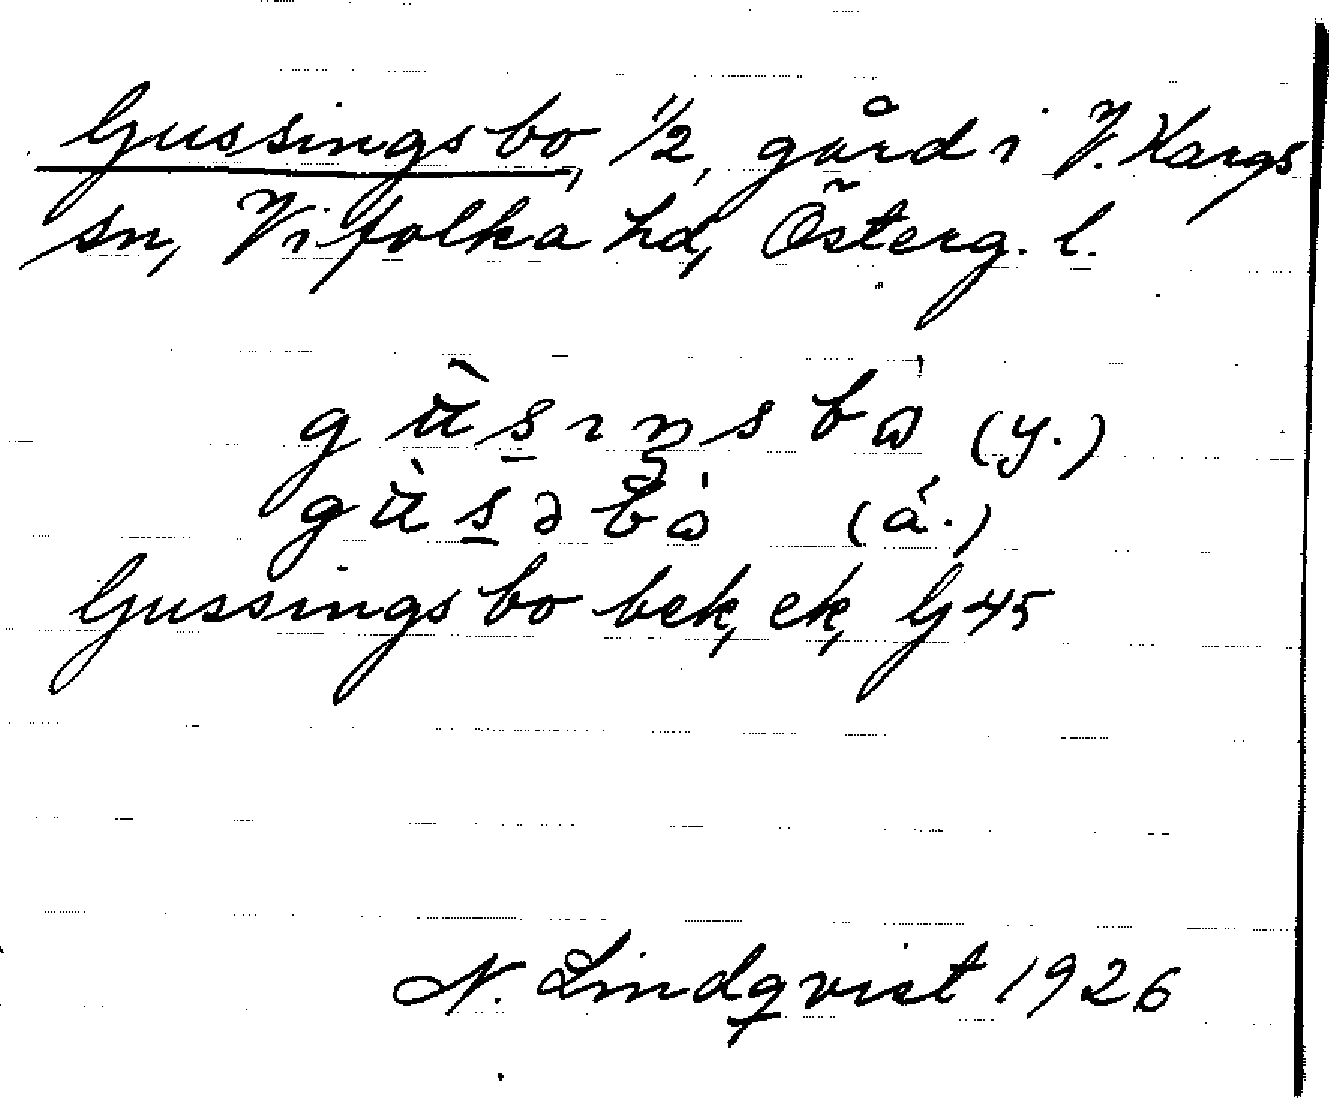 Gussingsbo, 1/2, gård i V. Hargs
sn, Vifolka hd, Österg. l.
gùsıŋsbò (y.)
gùsəbò (á.)
Gussingsbo bek, ek, G 45
N. Lindqvist 1926